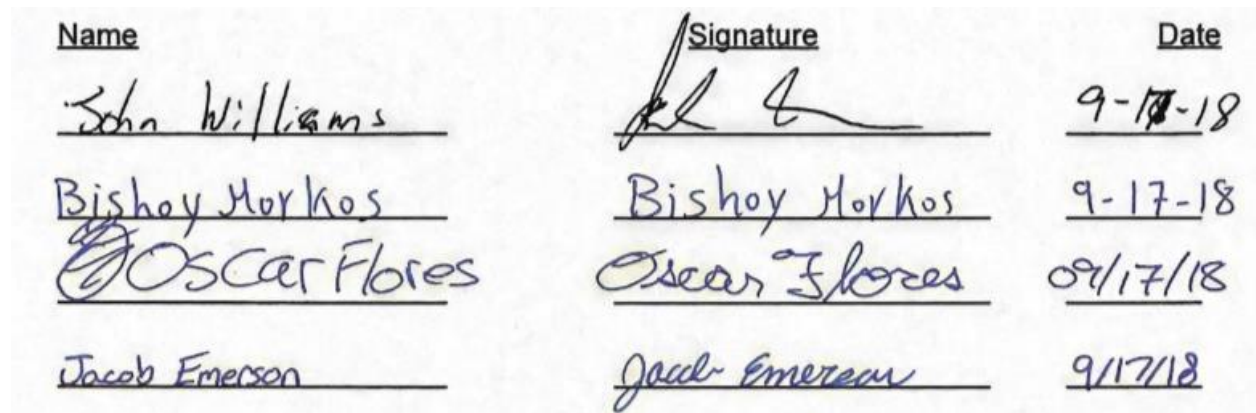 Name Signature Date
John Williams 9-17-18
Bishoy Morkos Bishoy Morkos 9-17-18
Oscar Flores Oscar Flores 09/17/18
Jacob Emerson Jacob Emerson 9/17/18